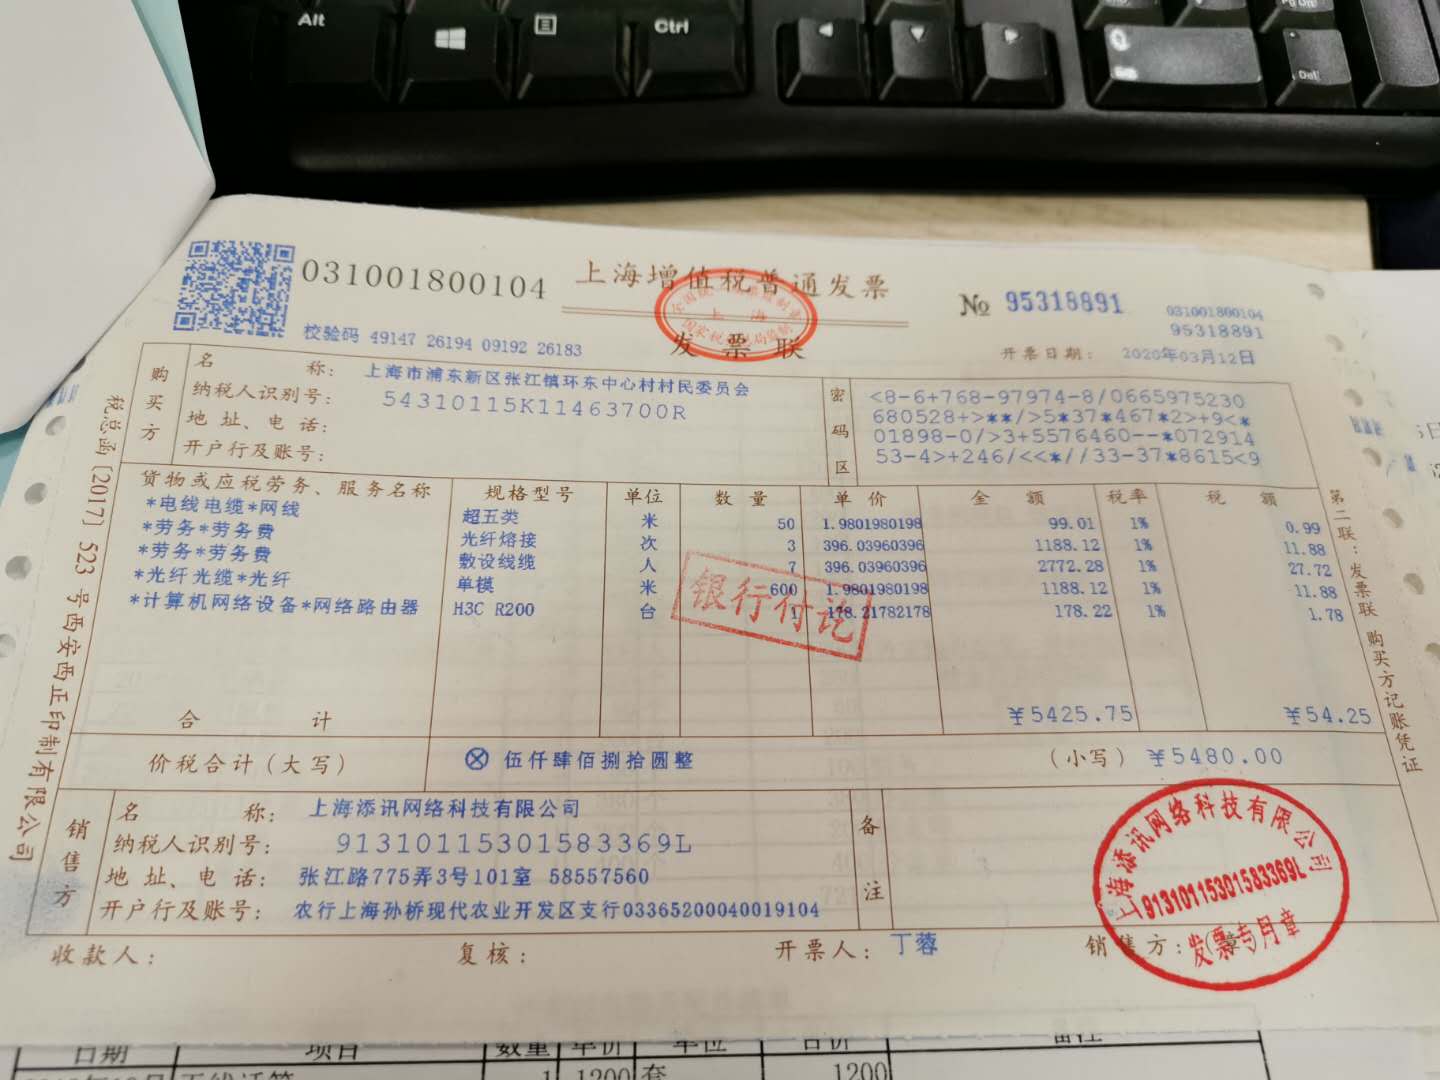 Alt
Ctrl
Del
031001800104
上海增值税普通发票
发票联
№ 95318891
031001800104
95318891
校验码 49147 26194 09192 26183
开票日期: 2020年03月12日
购买方
名 称: 上海市浦东新区张江镇环东中心村村民委员会
纳税人识别号: 54310115K11463700R
地 址、电 话:
开户行及账号:
密码区
<8-6+768-97974-8/0665975230
680528+>**/>5*37*467*2>+9<*
01898-0/>3+5576460--*072914
53-4>+246/<<*//33-37*8615<9
货物或应税劳务、服务名称 规格型号 单位 数 量 单 价 金 额 税率 税 额
*电线电缆*网线 超五类 米 50 1.9801980198 99.01 1% 0.99
*劳务*劳务费 光纤熔接 次 3 396.03960396 1188.12 1% 11.88
*劳务*劳务费 敷设线缆 人 7 396.03960396 2772.28 1% 27.72
*光纤光缆*光纤 单模 米 600 1.9801980198 1188.12 1% 11.88
*计算机网络设备*网络路由器 H3C R200 台 1 178.21782178 178.22 1% 1.78
银行付讫
合 计 ¥5425.75 ¥54.25
价税合计(大写) ⊗ 伍仟肆佰捌拾圆整 (小写) ¥5480.00
销售方
名 称: 上海添讯网络科技有限公司
纳税人识别号: 91310115301583369L
地 址、电 话: 张江路775弄3号101室 58557560
开户行及账号: 农行上海孙桥现代农业开发区支行03365200040019104
备注
收款人: 复核: 开票人: 丁蓉 销售方:(章)
上海添讯网络科技有限公司
91310115301583369L
发票专用章
税总函[2017]523号西安西正印制有限公司
第二联:发票联 购买方记账凭证
日期 项目 数量 单价 单位 合价 备注
1 1200 套 1200